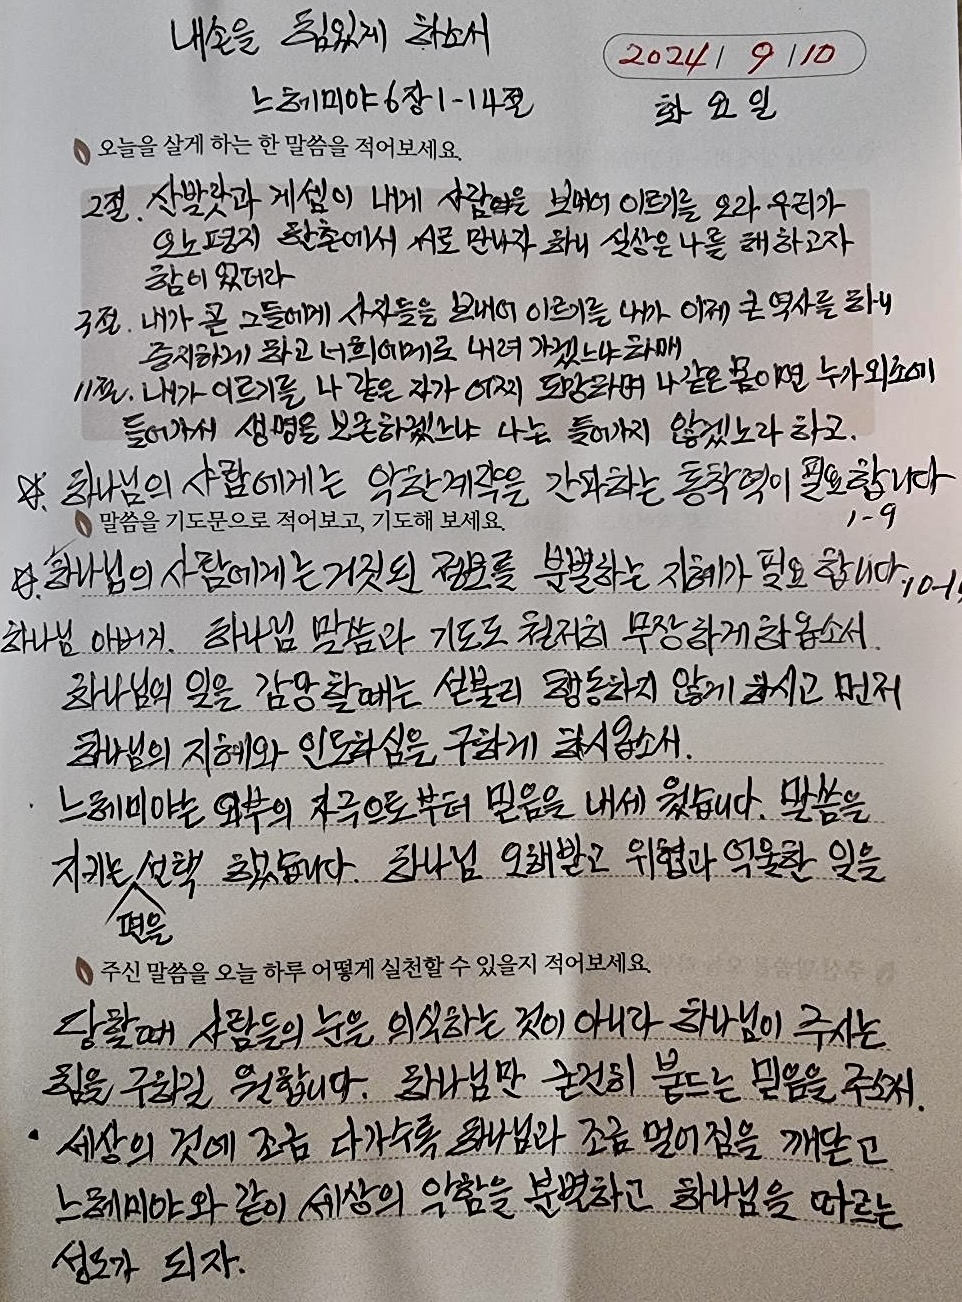 내손을 힘있게 하소서
2024 / 9 / 10
느헤미야 6장 1-14절
화요일
오늘을 살게 하는 한 말씀을 적어보세요.
2절. 산발랏과 게셈이 내게 사람을 보내어 이르기를 오라 우리가
오노 평지 한촌에서 서로 만나자 하니 실상은 나를 해하고자
함이 있더라
3절. 내가 곧 그들에게 사자들을 보내어 이르기를 내가 이제 큰 역사를 하니
중지하게 하고 너희에게로 내려 가겠느냐 하매
11절. 내가 이르기를 나 같은 자가 어찌 도망하며 나 같은 몸이면 누가 외소에
들어가서 생명을 보존하겠느냐 나는 들어가지 않겠노라 하고.
☆. 하나님의 사람에게는 악한계략을 간파하는 통찰력이 필요합니다
1-9
말씀을 기도문으로 적어보고, 기도해 보세요.
☆. 하나님의 사람에게는 거짓된 정보를 분별하는 지혜가 필요합니다.
하나님 아버지. 하나님 말씀과 기도도 철저히 무장하게 하옵소서.
하나님의 일을 감당할때는 섣불리 행동하지 않게 하시고 먼저
하나님의 지혜와 인도하심을 구하게 하시옵소서.
느헤미야는 외부의 자극으로부터 믿음을 내세웠습니다. 말씀을
지키는 선택 했습니다. 하나님 오해받고 위협과 억울한 일을
편을
주신 말씀을 오늘 하루 어떻게 실천할 수 있을지 적어보세요.
당할때 사람들의 눈을 의식하는 것이 아니라 하나님이 주시는
힘을 구하길 원합니다. 하나님만 굳건히 붙드는 믿음을 주소서.
• 세상의 것에 조금 다가수록 하나님과 조금 멀어짐을 깨닫고
느헤미야와 같이 세상의 악함을 분별하고 하나님을 따르는
성도가 되자.